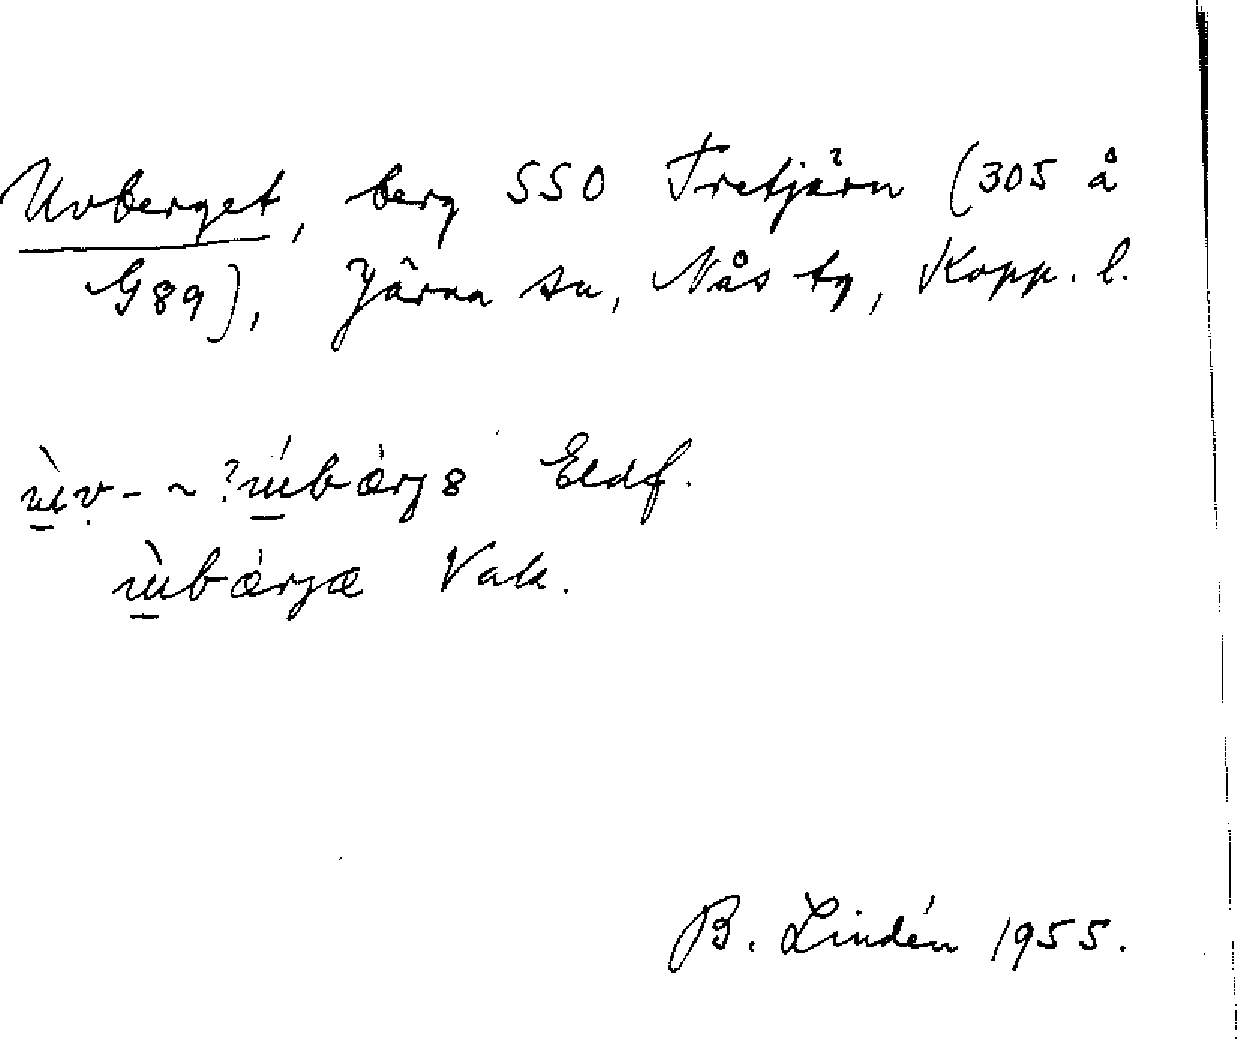 Uvberget, berg SSO Tretjärn (305 å
G89), Järna sn, Nås tg, Kopp. l.
Eldf.
Vak.
B. Lindén 1955.